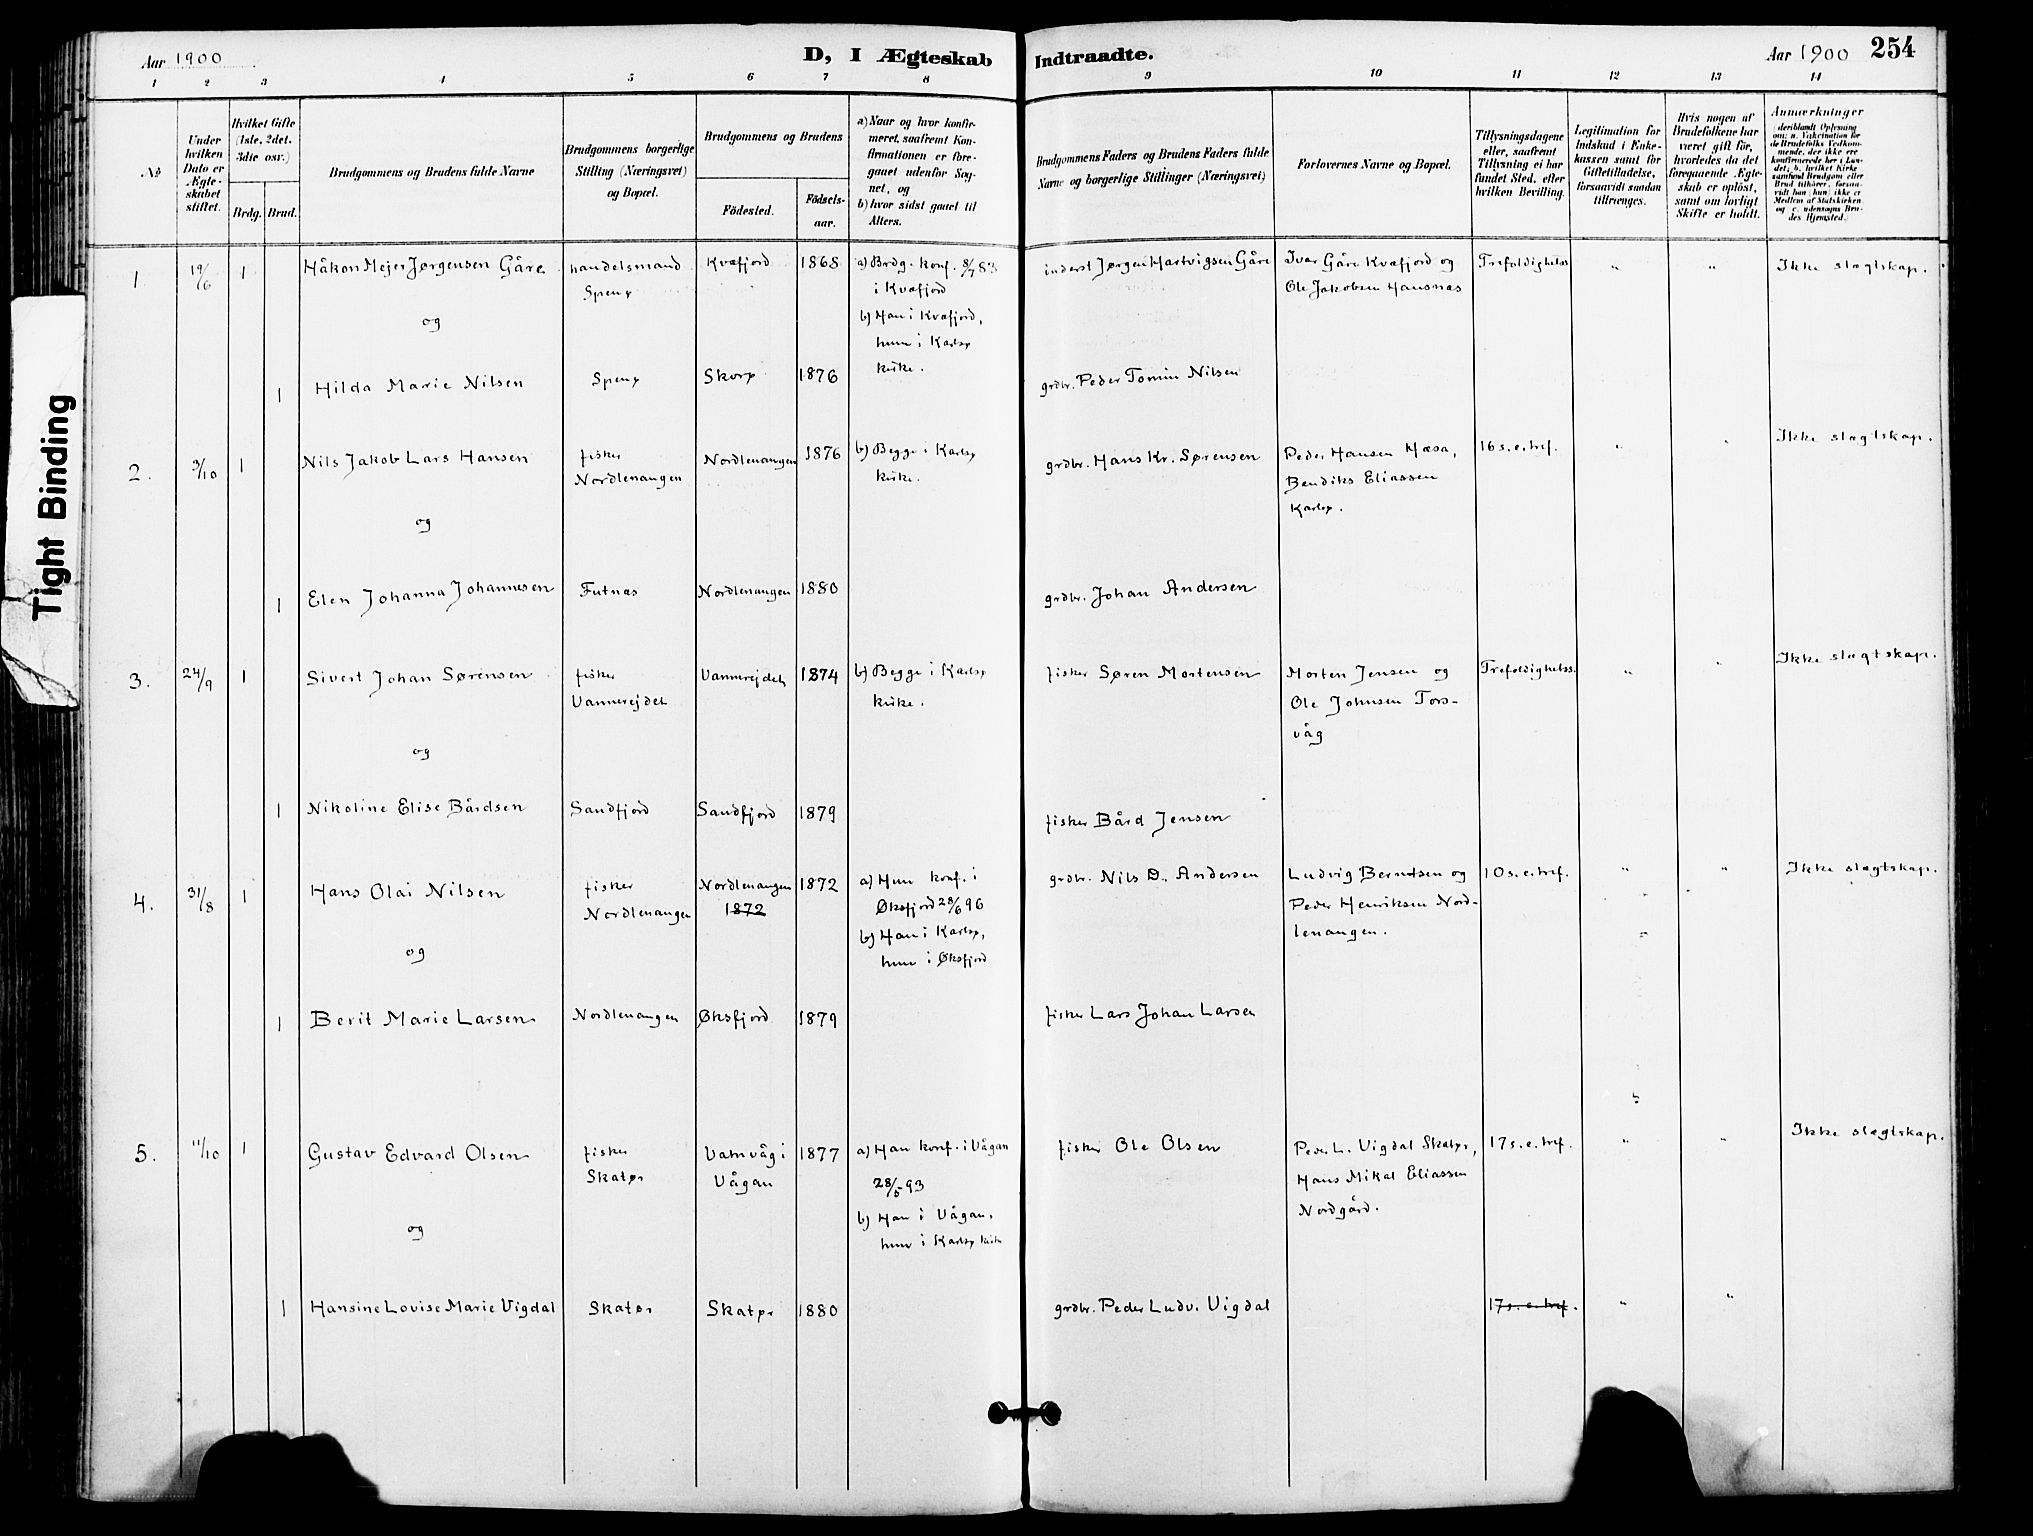 Aar 1900
D, I Ægteskab
Indtraadte.
Aar 1900 254
1 2 3 4 5 6 7 8
9 10 11 12 13 14
No
Under hvilken Dato er Ægteskabet stiftet.
Hvilket Gifte (1ste, 2det, 3die osv.)
Brdg. Brud.
Brudgommens og Brudens fulde Navne
Brudgommens borgerlige Stilling (Næringsvei) og Bopæl.
Brudgommens og Brudens
Fødested.
Fødselsaar.
a) Naar og hvor konfirmeret, saafremt Konfirmationen er foregaaet udenfor Sognet, og
b) hvor sidst gaaet til Alters.
Brudgommens Faders og Brudens Faders fulde Navne og borgerlige Stillinger (Næringsvei)
Forlovernes Navne og Bopæl.
Tillysningsdagene eller, saafremt Tillysning ei har fundet Sted, efter hvilken Bevilling.
Legitimation for Indskud i Enkekassen samt for Giftetilladelse, forsaavidt saadan tiltrænges.
Hvis nogen af Brudefolkene har været gift før, hvorledes da det foregaaende Ægteskab er opløst, samt om lovligt Skifte er holdt.
Anmærkninger (deriblandt Oplysning om: a. Vakcination for de Brudefolks Vedkommende, der ikke ere konfirmerede her i Landet; b. hvilket Kirkesamfund Brudgom eller Brud tilhører, forsaavidt han (hun) ikke er Medlem af Statskirken og c. udensogns Brudes Hjemsted.
1. 19/6 1 Håkon Mejer Jørgensen Gåre handelsmand Kvæfjord 1868 a) Brdg. konf. 8/7 83
Speny i Kvæfjord
og b) Han i Kvæfjord,
hun i Karlsø
kirke.
1 Hilda Marie Nilsen Speny Skorø 1876
inderst Jørgen Hartvigsen Gåre Ivar Gåre Kvæfjord og Trefoldighetss „ „ Ikke slægtskap.
Ole Jakobsen Hansnæs
grdbr. Peder Tomin Nilsen
2. 3/10 1 Nils Jakob Lars Hansen fisker Nordlenangen 1876 b) Begge i Karlsø
Nordlenangen kirke.
og
1 Elen Johanna Johannesen Futnæs Nordlenangen 1880
grdbr. Hans Kr. Sørensen Peder Hansen Mæsa, 16 s. e. tref. „ „ Ikke slægtskap.
Bendiks Eliassen
Karlsø.
grdbr. Johan Andersen
3. 24/9 1 Sivert Johan Sørensen fisker Vannrejdet 1874 b) Begge i Karlsø
Vannrejdet kirke.
og
1 Nikoline Elise Bårdsen Sandfjord Sandfjord 1879
fisker Søren Mortensen Morten Jensen og Trefoldighetss. „ „ Ikke slægtskap.
Ole Johnsen Tors-
våg
fisker Bård Jensen
4. 31/8 1 Hans Olai Nilsen fisker Nordlenangen 1872 a) Hun konf. i
Nordlenangen 1872 Øksfjord 28/6 96
og b) Han i Karlsø,
hun i Øksfjord
1 Berit Marie Larsen Nordlenangen Øksfjord 1879
grdbr. Nils D. Andersen Ludvig Berntsen og 10 s. e. tref. „ „ Ikke slægtskap.
Peder Henriksen Nord-
lenangen.
fisker Lars Johan Larsen
5. 11/10 1 Gustav Edvard Olsen fisker Vatnvåg i 1877 a) Han konf. i Vågan
Skatør Vågan 28/5 93
og b) Han i Vågan,
hun i Karlsø kirke
1 Hansine Lovise Marie Vigdal Skatør Skatør 1880
fisker Ole Olsen Peder L. Vigdal Skatør, 17 s. e. tref. „ „ Ikke slægtskap.
Hans Mikal Eliassen
Nordgård.
grdbr. Peder Ludv. Vigdal 17 s. e. tref. „ „
Tight Binding